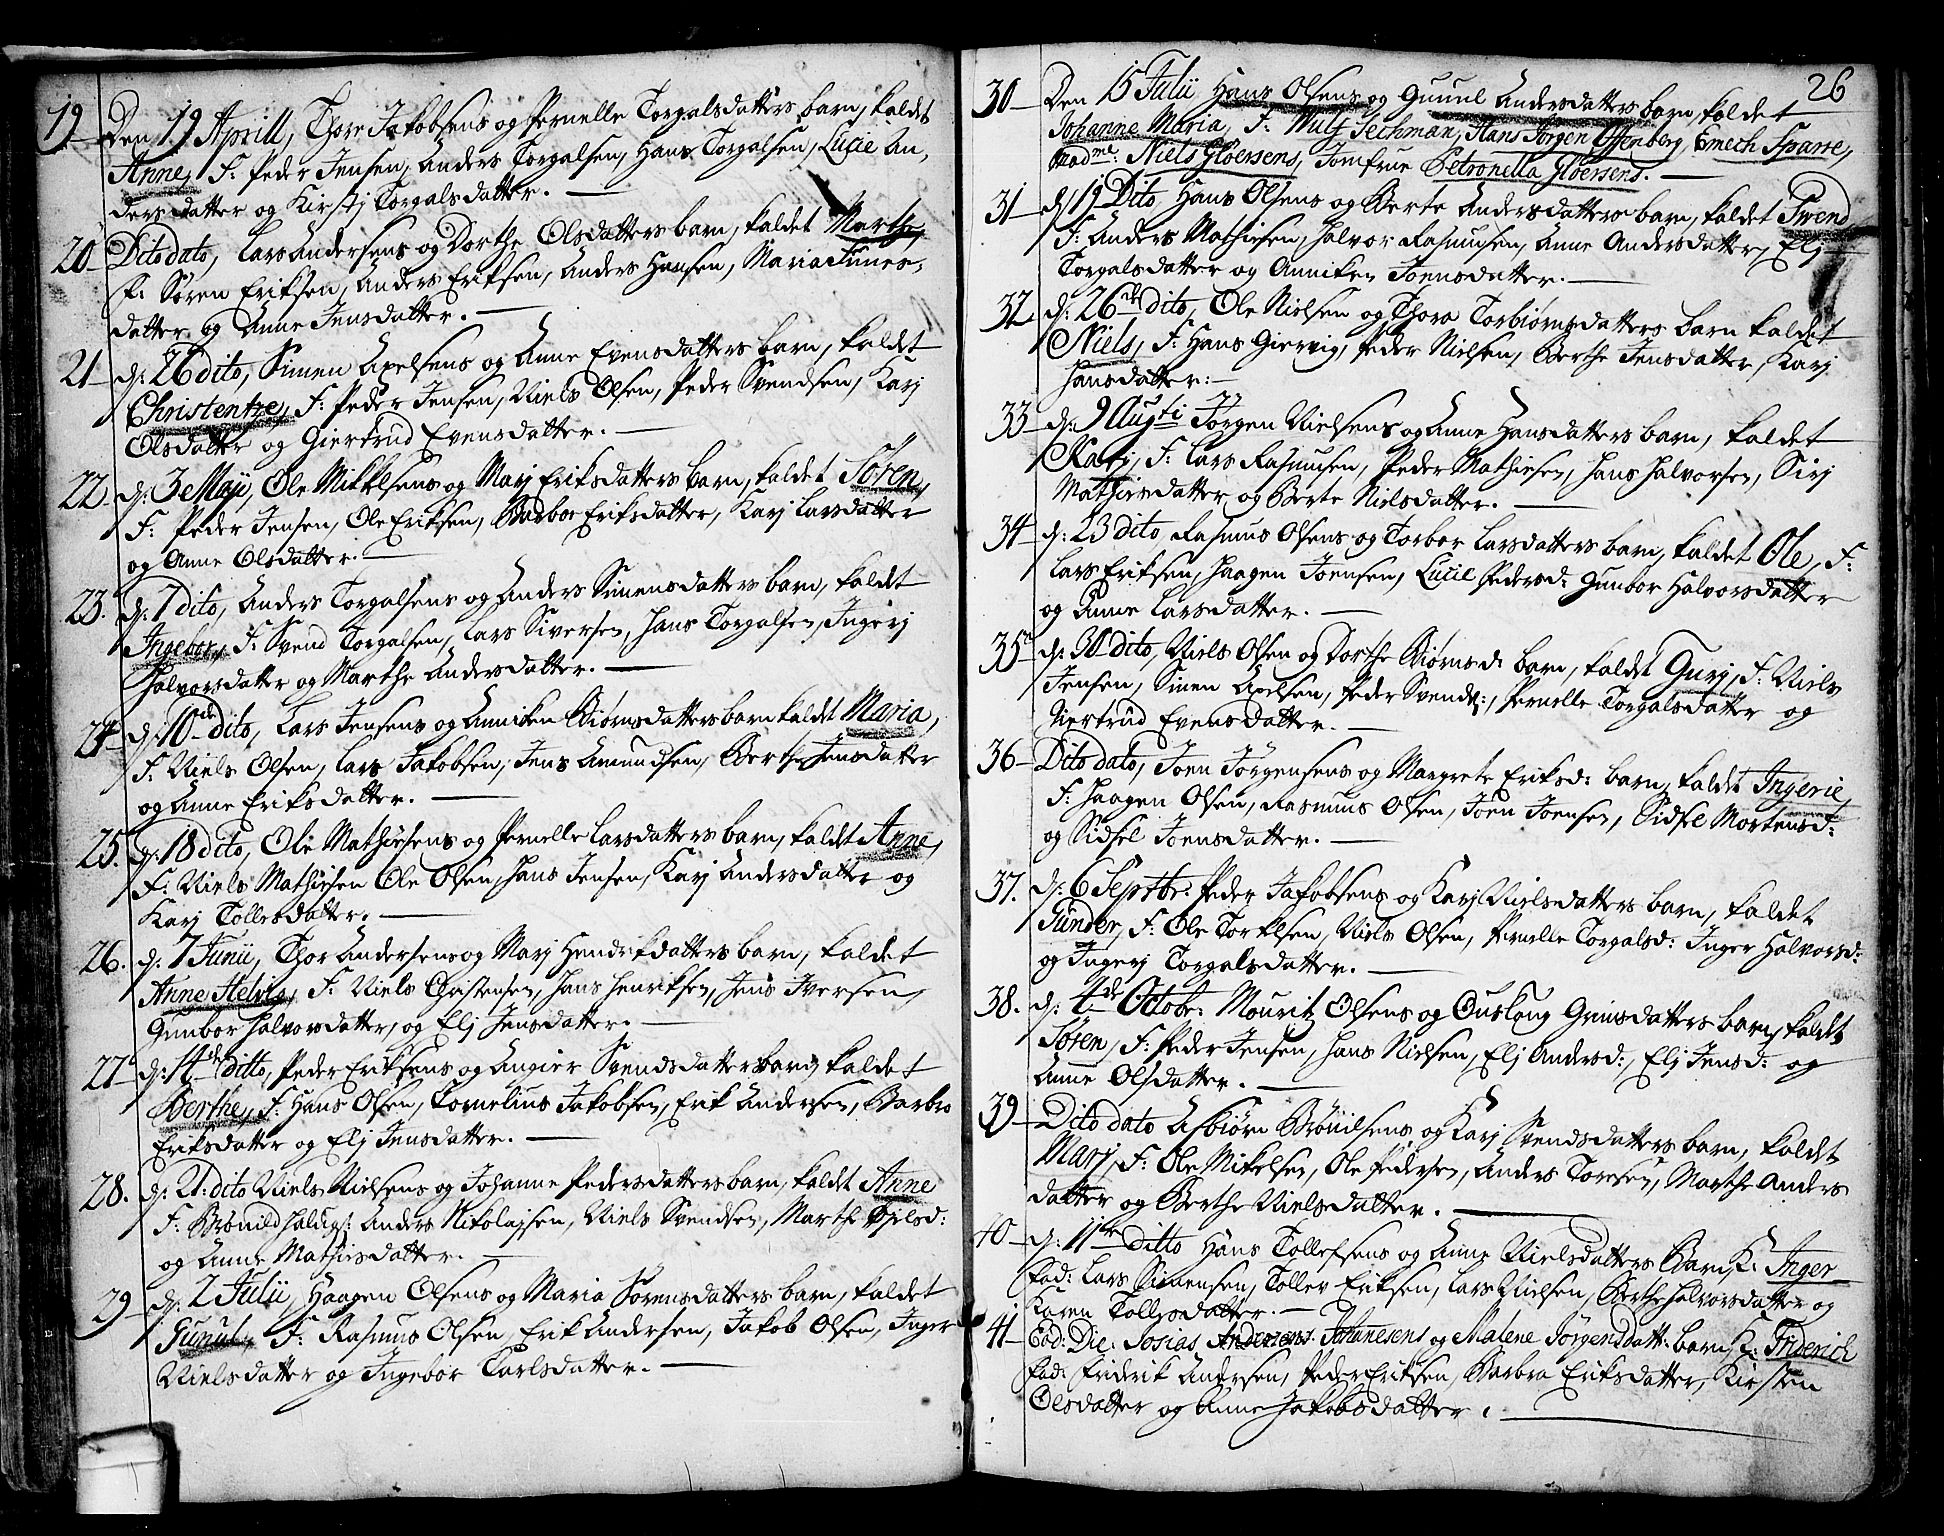 19 Den 19 Aprill, Thore Jakobsens og Pernelle Torgalsdatters barn, kaldet
Anne, F: Peder Jensen, Anders Torgalsen, Hans Torgalsen, Lucie An,
ders datter og Kirstj Torgalsdatter.
20 Dito dato, Lars Andersens og Dorthe Olsdatters barn, kaldet Marthe,
F: Søren Eriksen, Anders Eriksen, Anders Hansen, Maria
datter og Anne Jensdatter.
21 d: 26 dito, Simen Axelsens og Anne Evensdatters barn, kaldet
Christentze, F: Peder Jensen, Niels Olsen, Peder Svendsen, Karj
Olsdatter og Giertrud Evensdatter.
22 d: 3 Maji, Ole Mikkelsens og Marj Eriksdatters barn, kaldet Sören,
F: Peder Jensen, Ole Eriksen, Barbor Eriksdatter, Karj Larsdatter
og Anne Olsdatter.
23. d: 7 dito, Anders Torgalsens og Anders Simensdatters barn, kaldet
Ingebor, F: Svend Torgalsen, Lars Siversen, Hans Torgalsen, Ingerj
Halvorsdatter og Marthe Andersdatter.
24 d: 10de dito, Lars Jensens og Anniken Biørnsdatters barn kaldet Maria,
F: Niels Olsen, Lars Jakobsen, Jens Amundsen, Berthe Jensdatter
og Anne Eriksdatter.
25. d: 18 dito, Ole Mathiesens og Pernelle Larsdatters barn, kaldet Anne,
F: Niels Mathiesen Ole Olsen, Hans Jensen, Karj Andersdatter og
Karj Tollesdatter.
26. d: 7 Junii, Thor Andersens og Marj Hendrikdatters barn, kaldet
Anne Helvig, F: Niels Christensen, Hans Henriksen, Jens Iversen,
Gunbor Halvorsdatter, og Elj Jensdatter.
27 d: 14de ditto, Peder Eriksens og Angier Svendsdatters barn, kaldet
Berthe, F: Hans Olsen, Cornelius Jakobsen, Erik Andersen, Barbro
Eriksdatter og Elj Jensdatter.
28. d: 21 dito Niels Nielsens og Johanne Pedersdatters barn, kaldet Anne
F: Anders Nikolajsen, Niels Svendsen, Marthe
og Anne Mathisdatter.
29 d: 2 Julii, Haagen Olsens og Maria Sörensdatters barn, kaldet
Gunul, F: Rasmus Olsen, Erik Andersen, Jakob Olsen, Inger
Nielsdatter og Ingebor Carlsdatter.
26
30 Den 15 Julii Hans Olsens og Guunl Andersdatters barn, kaldet
Johanne Maria, F: Wulf Hans Jørgen Emech Sparre,
Madme: Niels Gloersens, Jomfrue Petronella Gloersens.
31 d: 19 Dito, Hans Olsens og Berte Andersdatters barn, kaldet Svend
F: Anders Mathiesen, Halvor Rasmusen, Anne Andersdatter, Elj
Torgalsdatter og Anniken Joensdatter.
32 d: 26de dito, Ole Nielsen og Thora Torbiørnsdatters barn kaldet
Niels, F: Hans Giervig, Peder Nielsen, Berthe Jensdatter, Karj
Hansdatter:
33 d: 9 Augti Jørgen Nielsens og Anne Hansdatters barn, kaldet
Karj, F: Lars Rasmusen, Peder Mathiesen, Hans Halvorsen, Sirj
Mathiesdatter og Berte Nielsdatter.
34 d: 23 dito, Rasmus Olsens og Torbor Larsdatters barn, kaldet Ole, F:
Lars Eriksen, Haagen Joensen, Lucie Pedersd: Gunbor Halvorsdatter
og Anne Larsdatter.
35 d: 30 dito, Niels Olsen og Dorthe Biørnsd: barn, kaldet Gurj, F: Niels
Jensen, Simen Axelsen, Peder Svends:, Pernelle Torgalsdatter og
Giertrud Evensdatter.
36 Dito dato, Joen Jörgensens og Margrete Eriksd: barn, kaldet Ingerie,
F: Haagen Olsen, Rasmuus Olsen, Joen Joensen, Sidsel Mortensd:
og Sidsel Joensdatter.
37. d: 6 Septbr: Peder Jakobsens og Karj Nielsdatters barn, kaldet
Gunder, F: Ole Torkelsen, Niels Olsen, Pernelle Torgalsd: Inger Halvorsd:
og Ingerj Torgalsdatter.
38. d: 4de Octobr: Mouritz Olsens og Ouslaug Grimsdatters barn, kaldet
Sören, F: Peder Jensen, Hans Nielsen, Elj Andersd:, Elj Jensd: og
Anne Olsdatter.
39 Dito dato Asbiørn Brönilsens og Karj Svendsdatters barn, kaldet
Marj, F: Ole Mikelsen, Ole Pedersen, Anders Toresen, Marthe Anders
datter og Berthe Nielsdatter.
40 d: 11te ditto Hans Tollefsens og Anne Nielsdatters Barn, K: Inger
Fad: Lars Simensen, Tollev Eriksen, Lars Nielsen, Berthe Halvorsdatter og
Karen Tollefsdatter.
41 Eod: Die: Josias Andersens Johanesens og Malene Jörgensdatt: barn, K: Friderich
Fad: Fridrik Andersen, Peder Eriksen, Barbra Eriksdatter, Kirsten
Olsdatter og Anne Jakobsdatter.